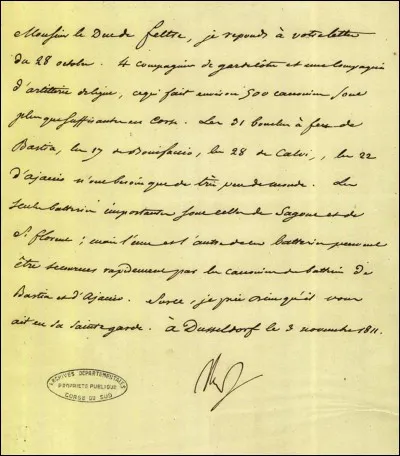 Monsieur le Duc de feltre, je reponds à votre lettre
du 28 octobre. 4 compagnies de garde côte et une compagnie
d'artillerie de ligne, ce qui fait environ 500 canonniers sont
plus que suffisantes en Corse. Les 31 bouches à feu de
Bastia, les 17 de Bonifaccio, les 28 de Calvi, les 22
d'ajaccio n'ont besoin que de très peu de monde. Les
seules batteries importantes sont celles de Sagone et de
St florent; mais l'une et l'autre de ces batteries peuvent
être secourues rapidement par les canonniers de
Bastia et d'Ajaccio. Sur ce, je prie Dieu qu'il vous
ait en sa sainte garde. à Dusseldorf le 3 novembre 1811.
ARCHIVES DÉPARTEMENTALES
PROPRIÉTÉ PUBLIQUE
CORSE DU SUD